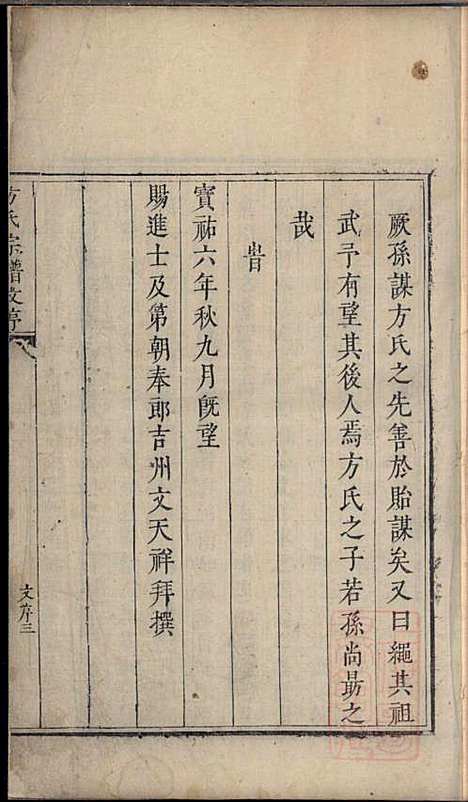 厥孫謀方氏之先善於貽謀矣又曰繩其祖
武予有望其後人焉方氏之子若孫尚勗之
哉
旹
寳祐六年秋九月旣望
賜進士及第朝奉郎吉州文天祥拜撰
方氏宗譜文序
文序三